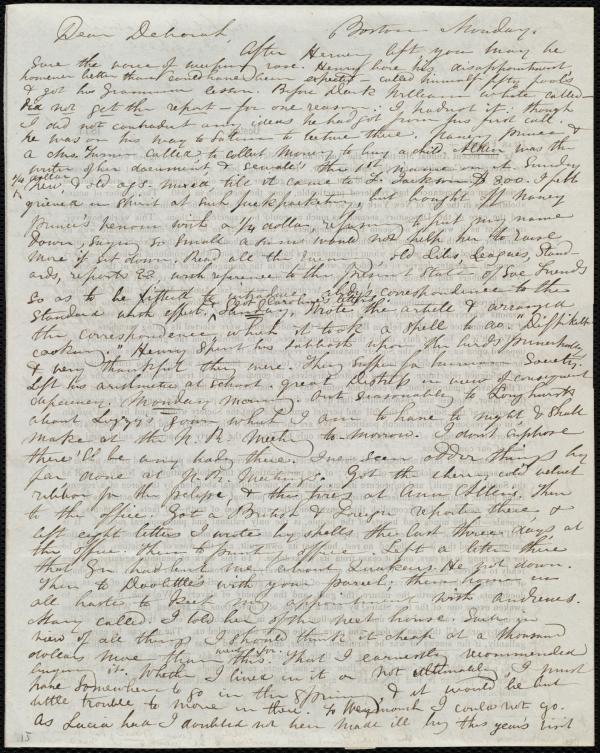 Boston Monday.
Dear Deborah,
After Hervey left you may be
sure the voice of weeping rose. Henry bore his disappointment
however better than could have been expected – called himself fifty fool's
& got his Grammar lesson. Before Dark William White called
Did not get the report – for one reason: I had not it, though
I did not contradict any ideas he had got from his first call.
he was on his way to to lecture there. Nancy Prince &
a Mrs. Turner called to collect money to buy a child. Allen was the
writer of her document & Sewall's the 1st name
New & old ags. mixed till it came to F. Jackson $3.00. I felt
1/4 dollar
grieved in spirit at such pickpocketing, but bought off Nancy
Prince's venom with a 1/4 dollar, refusing to put my name
down, saying so small a sum would not help her to raise
more if set down. Read all the old Libs, Leagues, Stand-
ards, reports &c with reference to the present state of Soc Friends
so as to be fitted to introduce correspondence to the
Standard with effect, Sunday, wrote the article & arranged
the correspondence which it took a spell to do. "Diffikelt
cooking." Henry spent his sabbath upon the birds principally
& very thankful they were. They suffer for human Society.
Left his arithmetic at school. great distress in view of consequent
Monday morning. Out seasonably to Longhursts
about Lizzy's gown which I am to have to night & shall
make at the N. R. Meet to-morrow. I don't suppose
there'll be any body there. I've seen odder things by
far none at N. R. Meetings. Got the cherry cold velvet
ribbon for the pelisse, & the tires at Ann Allen's. Then
to the office. Got a British & Foreign reporter there &
left eight letters I wrote by spells the last three days, at
the office. Then to printg office. Left a letter there
that Gn had lent me about Quakers. He got down.
Then to Doolittle's with your parcel; then home in
all haste to keep my appointment with Andrews.
Mary called. I told her of the next house. Such in
view of all things I should think it cheap at a thousand
dollars more than this. That I earnestly recommended
whether I lived in it or not ultimately, I must
have somewhere to go in the spring & it would be but
little trouble to move in there. To Weymouth I could not go.
As Lucia had I doubted not been made ill by this year's visit
15